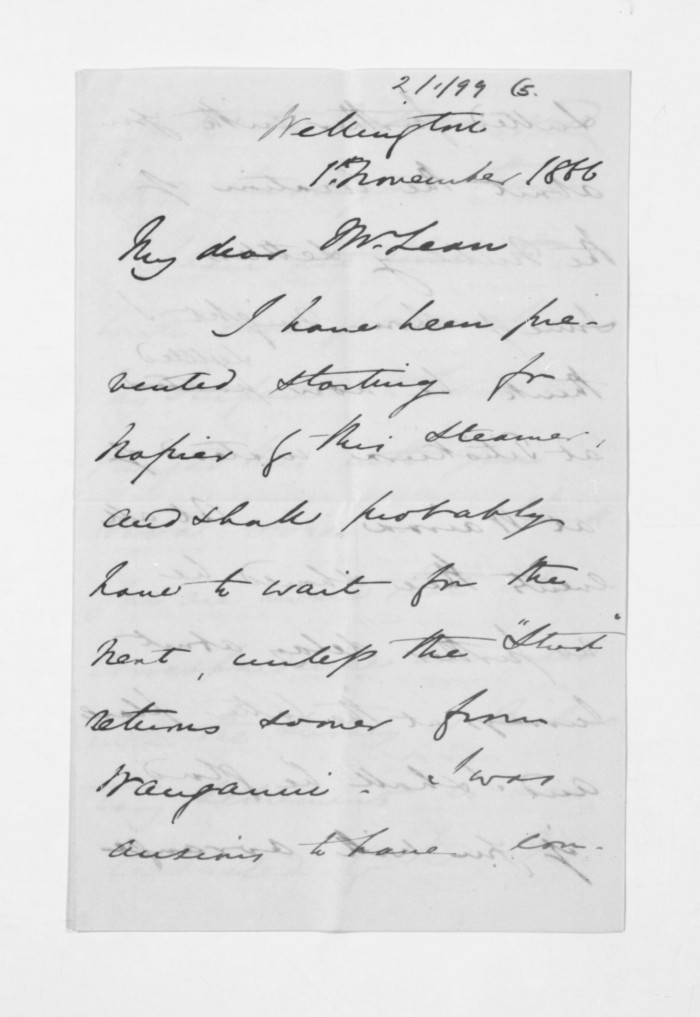 2/1/99 G.
Wellington
1st November 1866
My dear McLean
I have been pre-
vented starting for
Napier by this Steamer,
and shall probably
have to wait for the
next, unless the "Sturt"
returns sooner from
Wanganui. I was
anxious to have con-